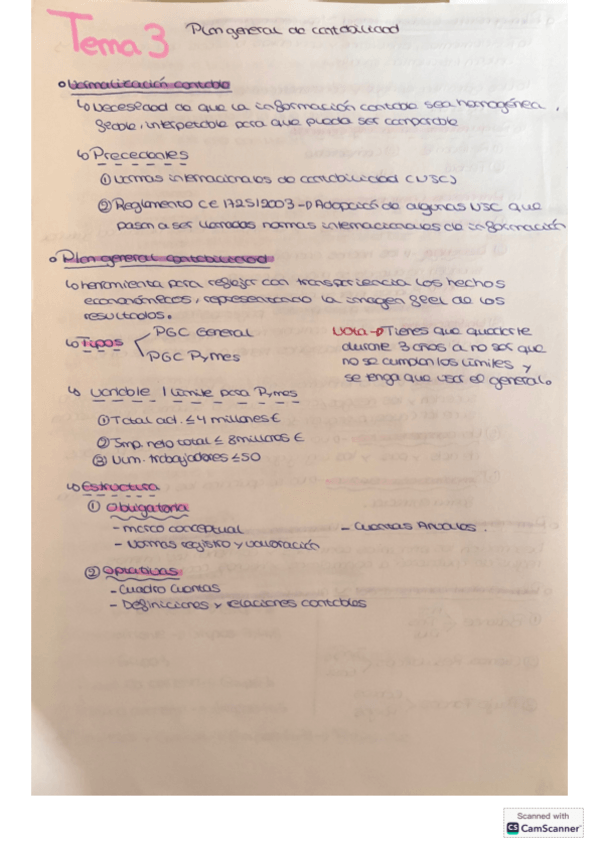 Tema 3 Plan general de contabilidad
Normalización contable
↳ Necesidad de que la información contable sea homogénea,
fiable, interpetable para que pueda ser comparable
↳ Precedentes
① Normas internacionales de contabilidad (NSC)
② Reglamento CE 1725/2003 → Adopción de algunas NSC que
pasan a ser llamadas normas internacionales de información
Plan general contabilidad
↳ herramienta para reflejar con transparencia los hechos
económicos, representando la imagen fiel de los
resultados.
↳ Tipos
PGC General
PGC Pymes
Nota → Tienes que quedarte
durante 3 años a no ser que
no se cumplan los límites y
se tenga que usar el general.
↳ Variable / Límite para Pymes
① Total act. ≤ 4 millones €
② Imp. neto total ≤ 8 millones €
③ Num. trabajadores ≤ 50
↳ Estructura
① Obligatoria
- marco conceptual
- Cuentas Anuales.
- Normas registro y valoración
② Optativas
- Cuadro Cuentas
- Definiciones y relaciones contables
Scanned with
CS CamScanner